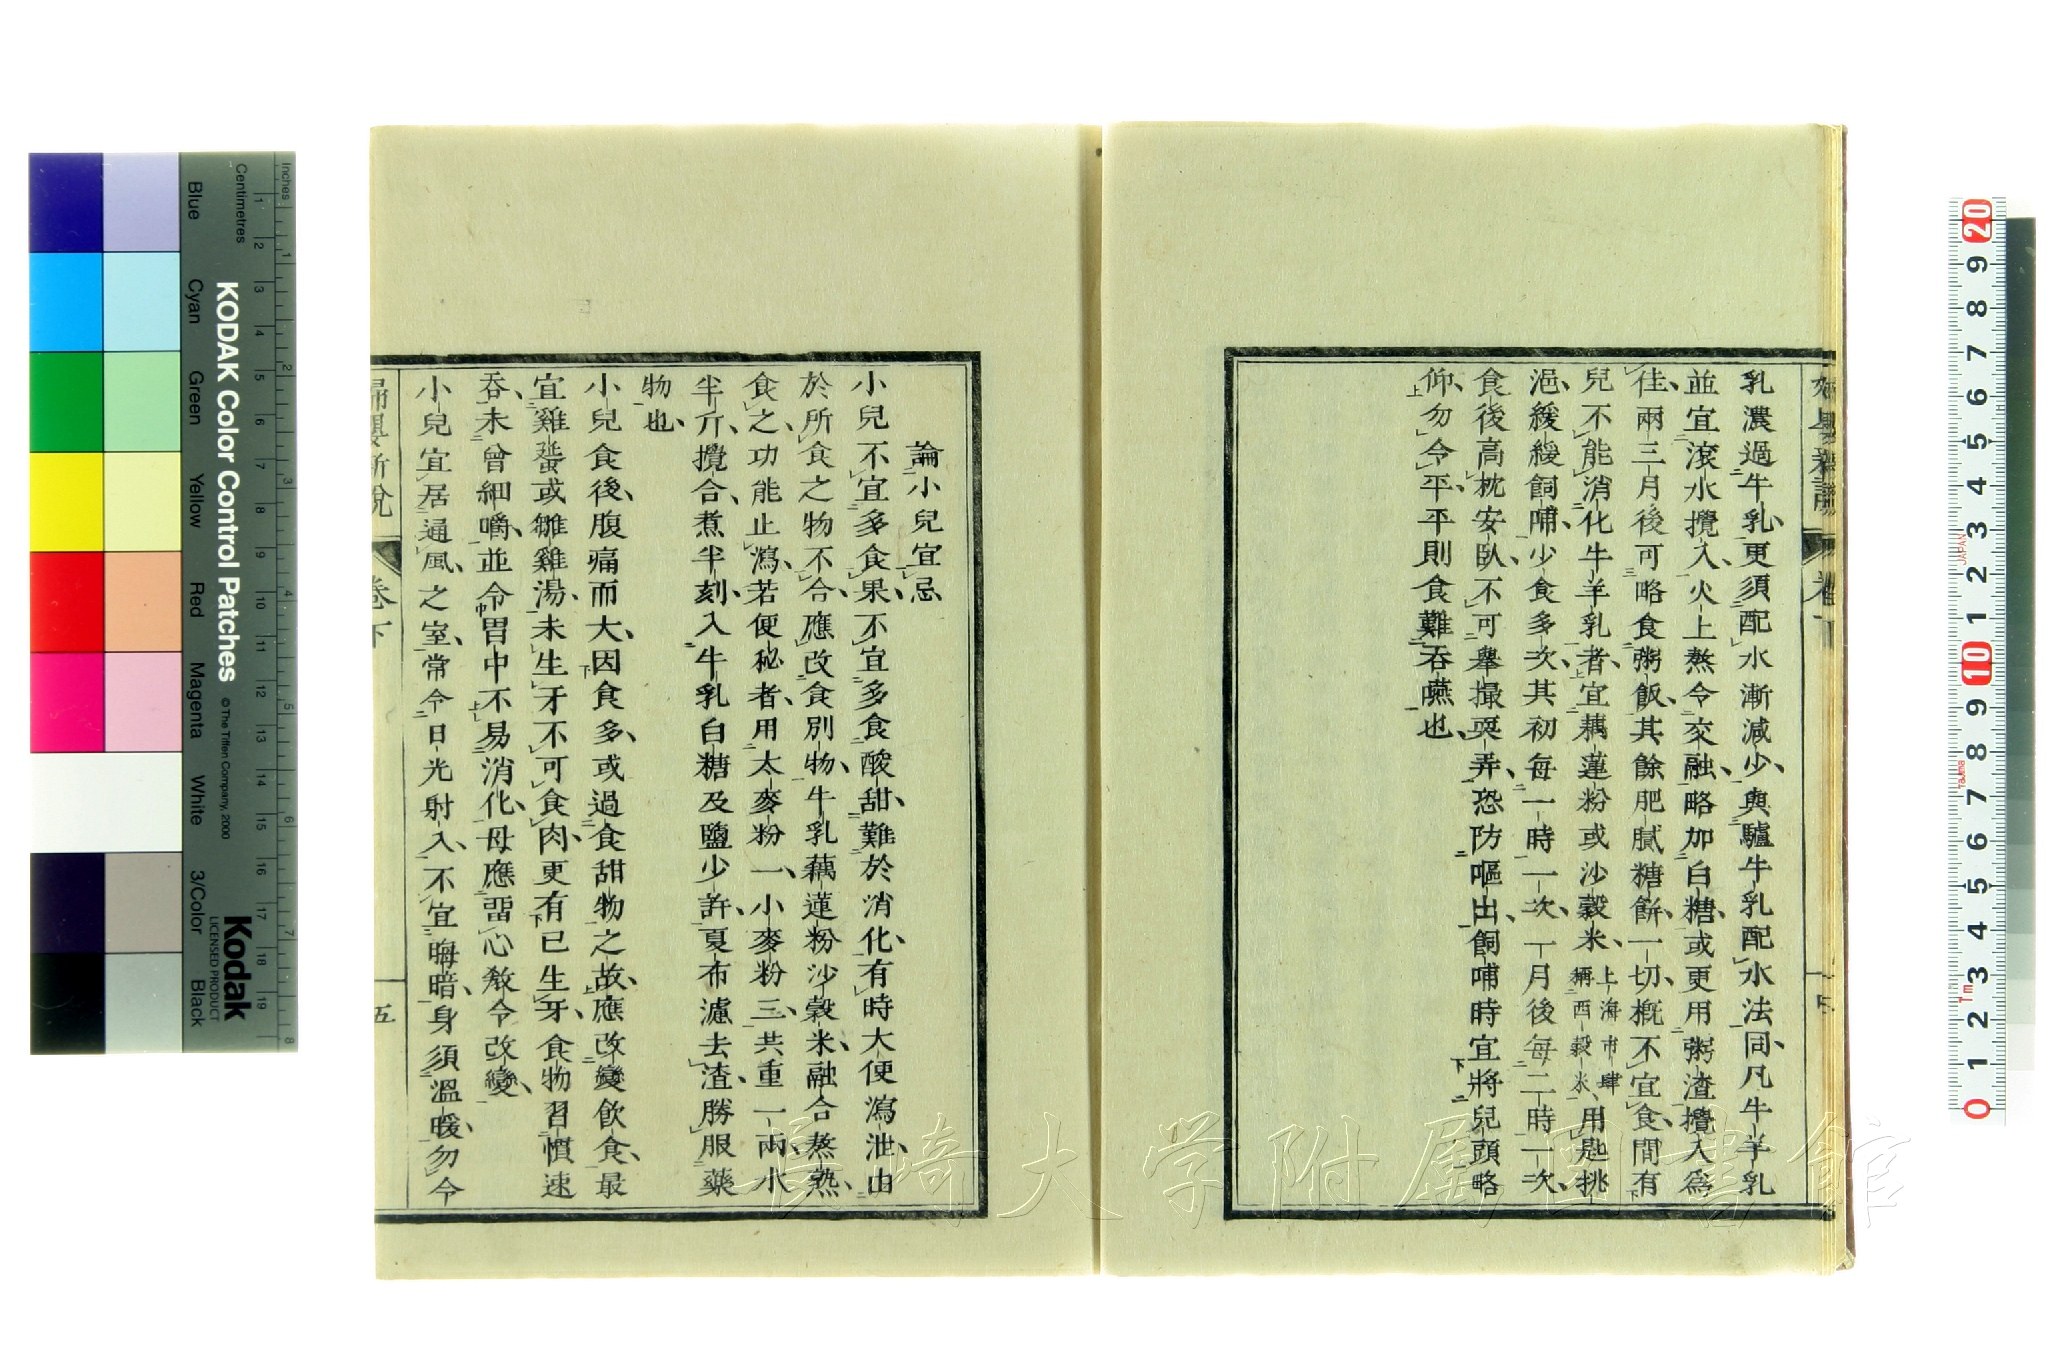 乳濃過牛乳、更須配水漸減少、與驢牛乳配水法同、凡牛羊乳
並宜滾水攪入、火上熬令交融、略加白糖、或更用粥渣攪入爲
佳、兩三月後可略食粥飯、其餘肥膩糖餅一切概不宜食、間有
兒不能消化牛羊乳者、宜藕蓮粉或沙穀米、上海市肆稱西穀米、用匙挑
浥、緩緩飼哺、少食多次、其初每一時一次、一月後每二時一次、
食後高枕安臥、不可舉撮耍弄、恐防嘔出、飼哺時宜將兒頭略
仰、勿令平、平則食難吞嚥也、
論小兒宜忌
小兒不宜多食果、不宜多食酸甜、難於消化、有時大便瀉泄、由
於所食之物不合、應改食別物、牛乳藕蓮粉沙穀米、融合熬熟、
食之功能止瀉、若便秘者、用太麥粉一、小麥粉三、共重一兩、水
半斤、攪合、煮半刻、入牛乳白糖及鹽少許、夏布濾去渣、勝服藥
物也、
小兒食後、腹痛而大、因食多、或過食甜物之故、應改變飲食、最
宜雞蛋或雛雞湯、未生牙不可食肉、更有已生牙、食物習慣速
吞、未曾細嚼、並令胃中不易消化、母應畱心教令改變、
小兒宜居通風之室、常令日光射入、不宜晦暗、身須溫暖、勿令
卷下
五
KODAK Color Control Patches
© The Tiffen Company, 2000
Kodak
LICENSED PRODUCT
Inches
Centimetres
Blue
Cyan
Green
Yellow
Red
Magenta
White
3/Color
Black
長崎大学附属図書館